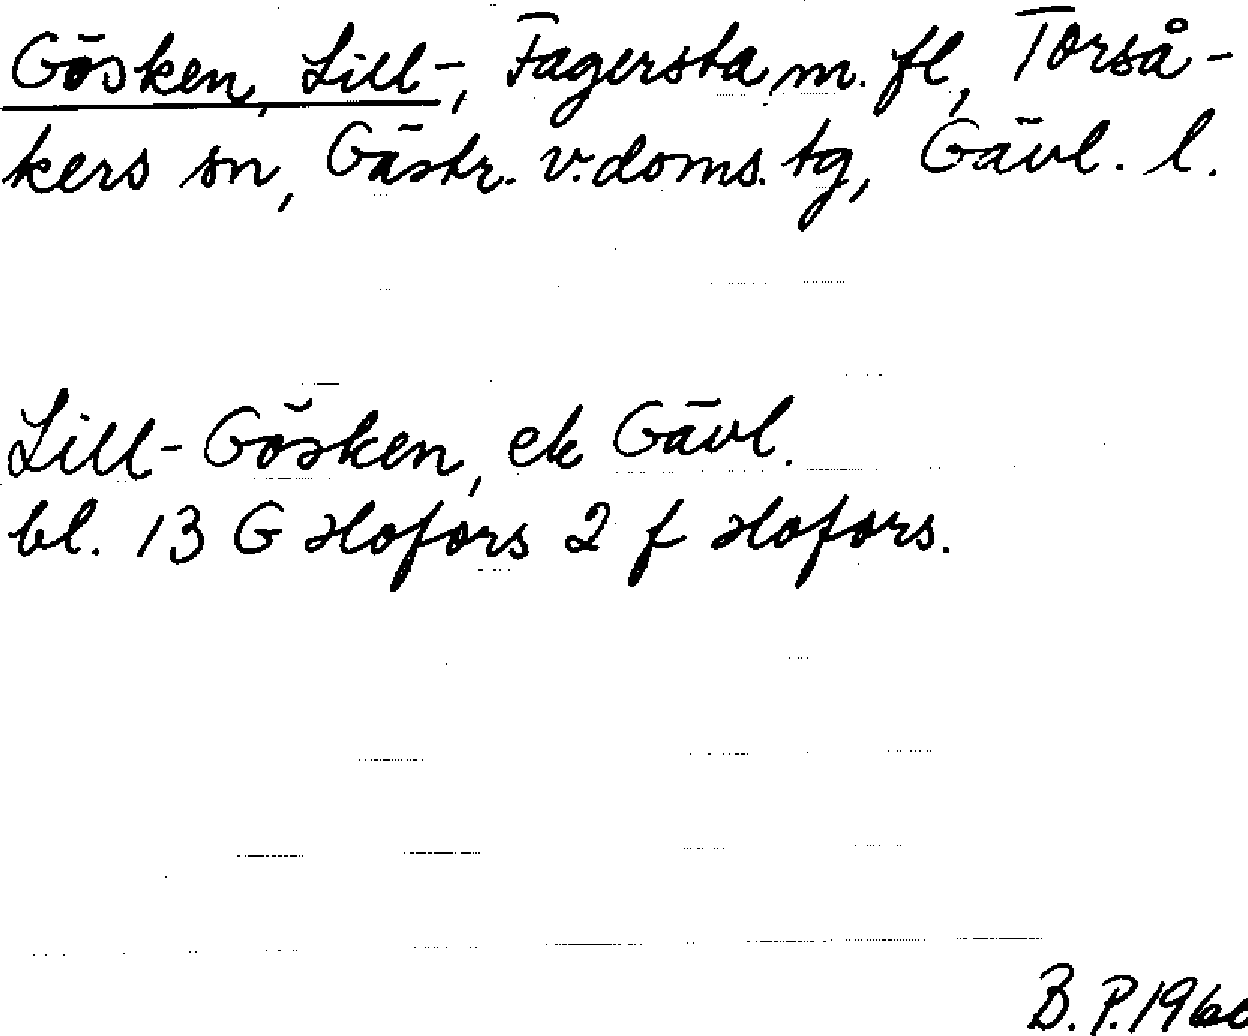 Gösken, Lill-, Fagersta m. fl, Torså-
kers sn, Gästr. v. doms. tg, Gävl. l.
Lill-Gösken, ek Gävl.
bl. 13 G Hofors 2 f Hofors.
B. P. 1960